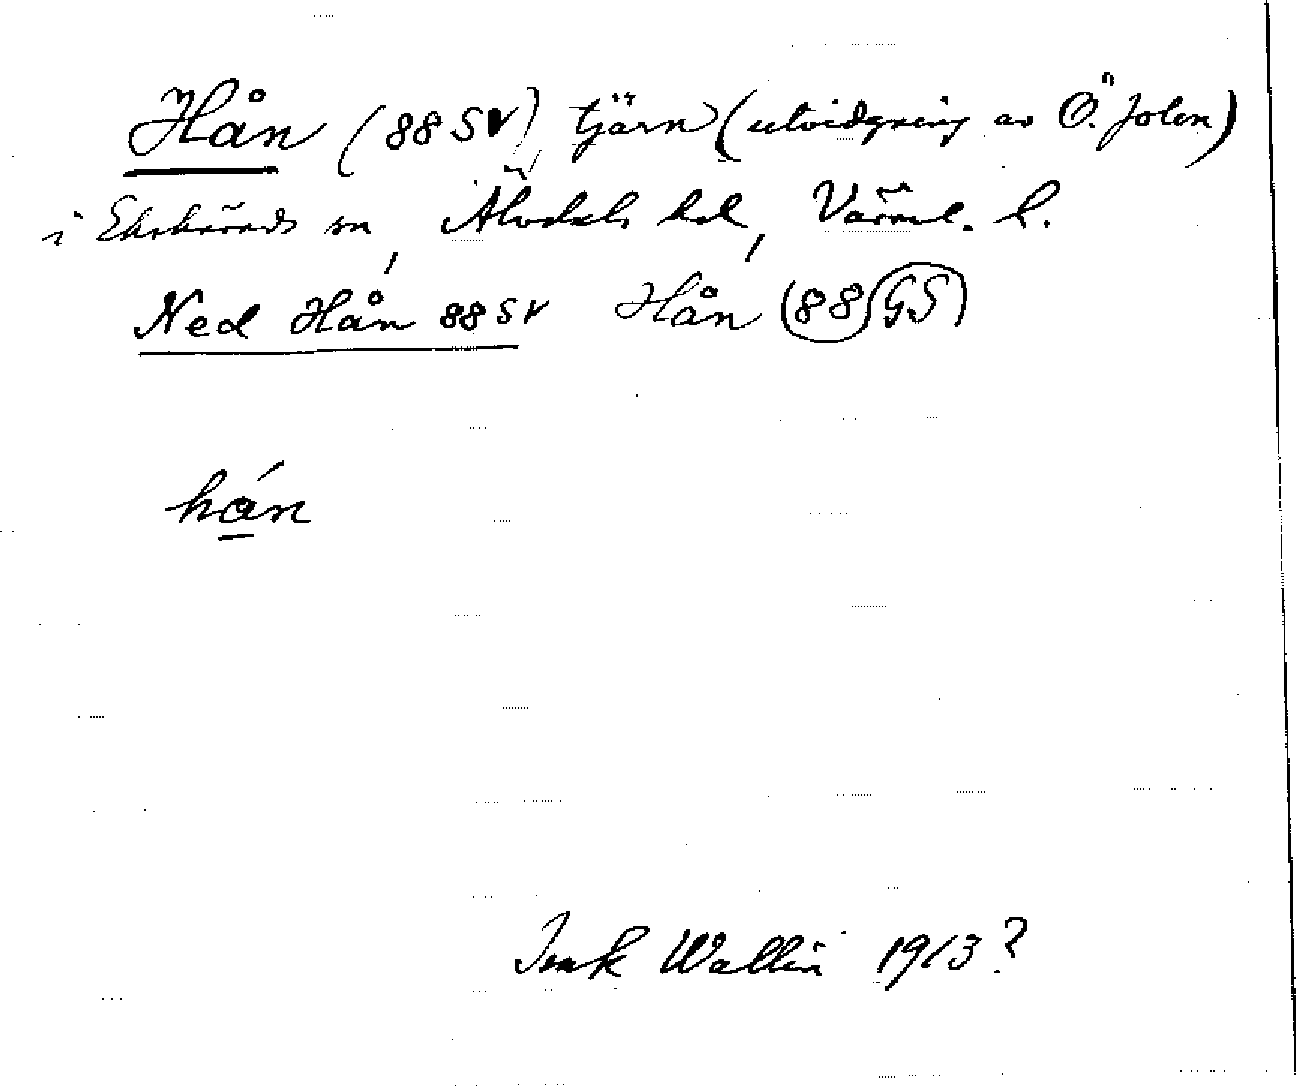 Hån (88 SV) tjärn (utvidgning av Ö. Jolen)
i Ekshärads sn, Älvdals hd, Värml. l.
Ned Hån 88 SV Hån (88 GS)
hán
Wallin 1913?